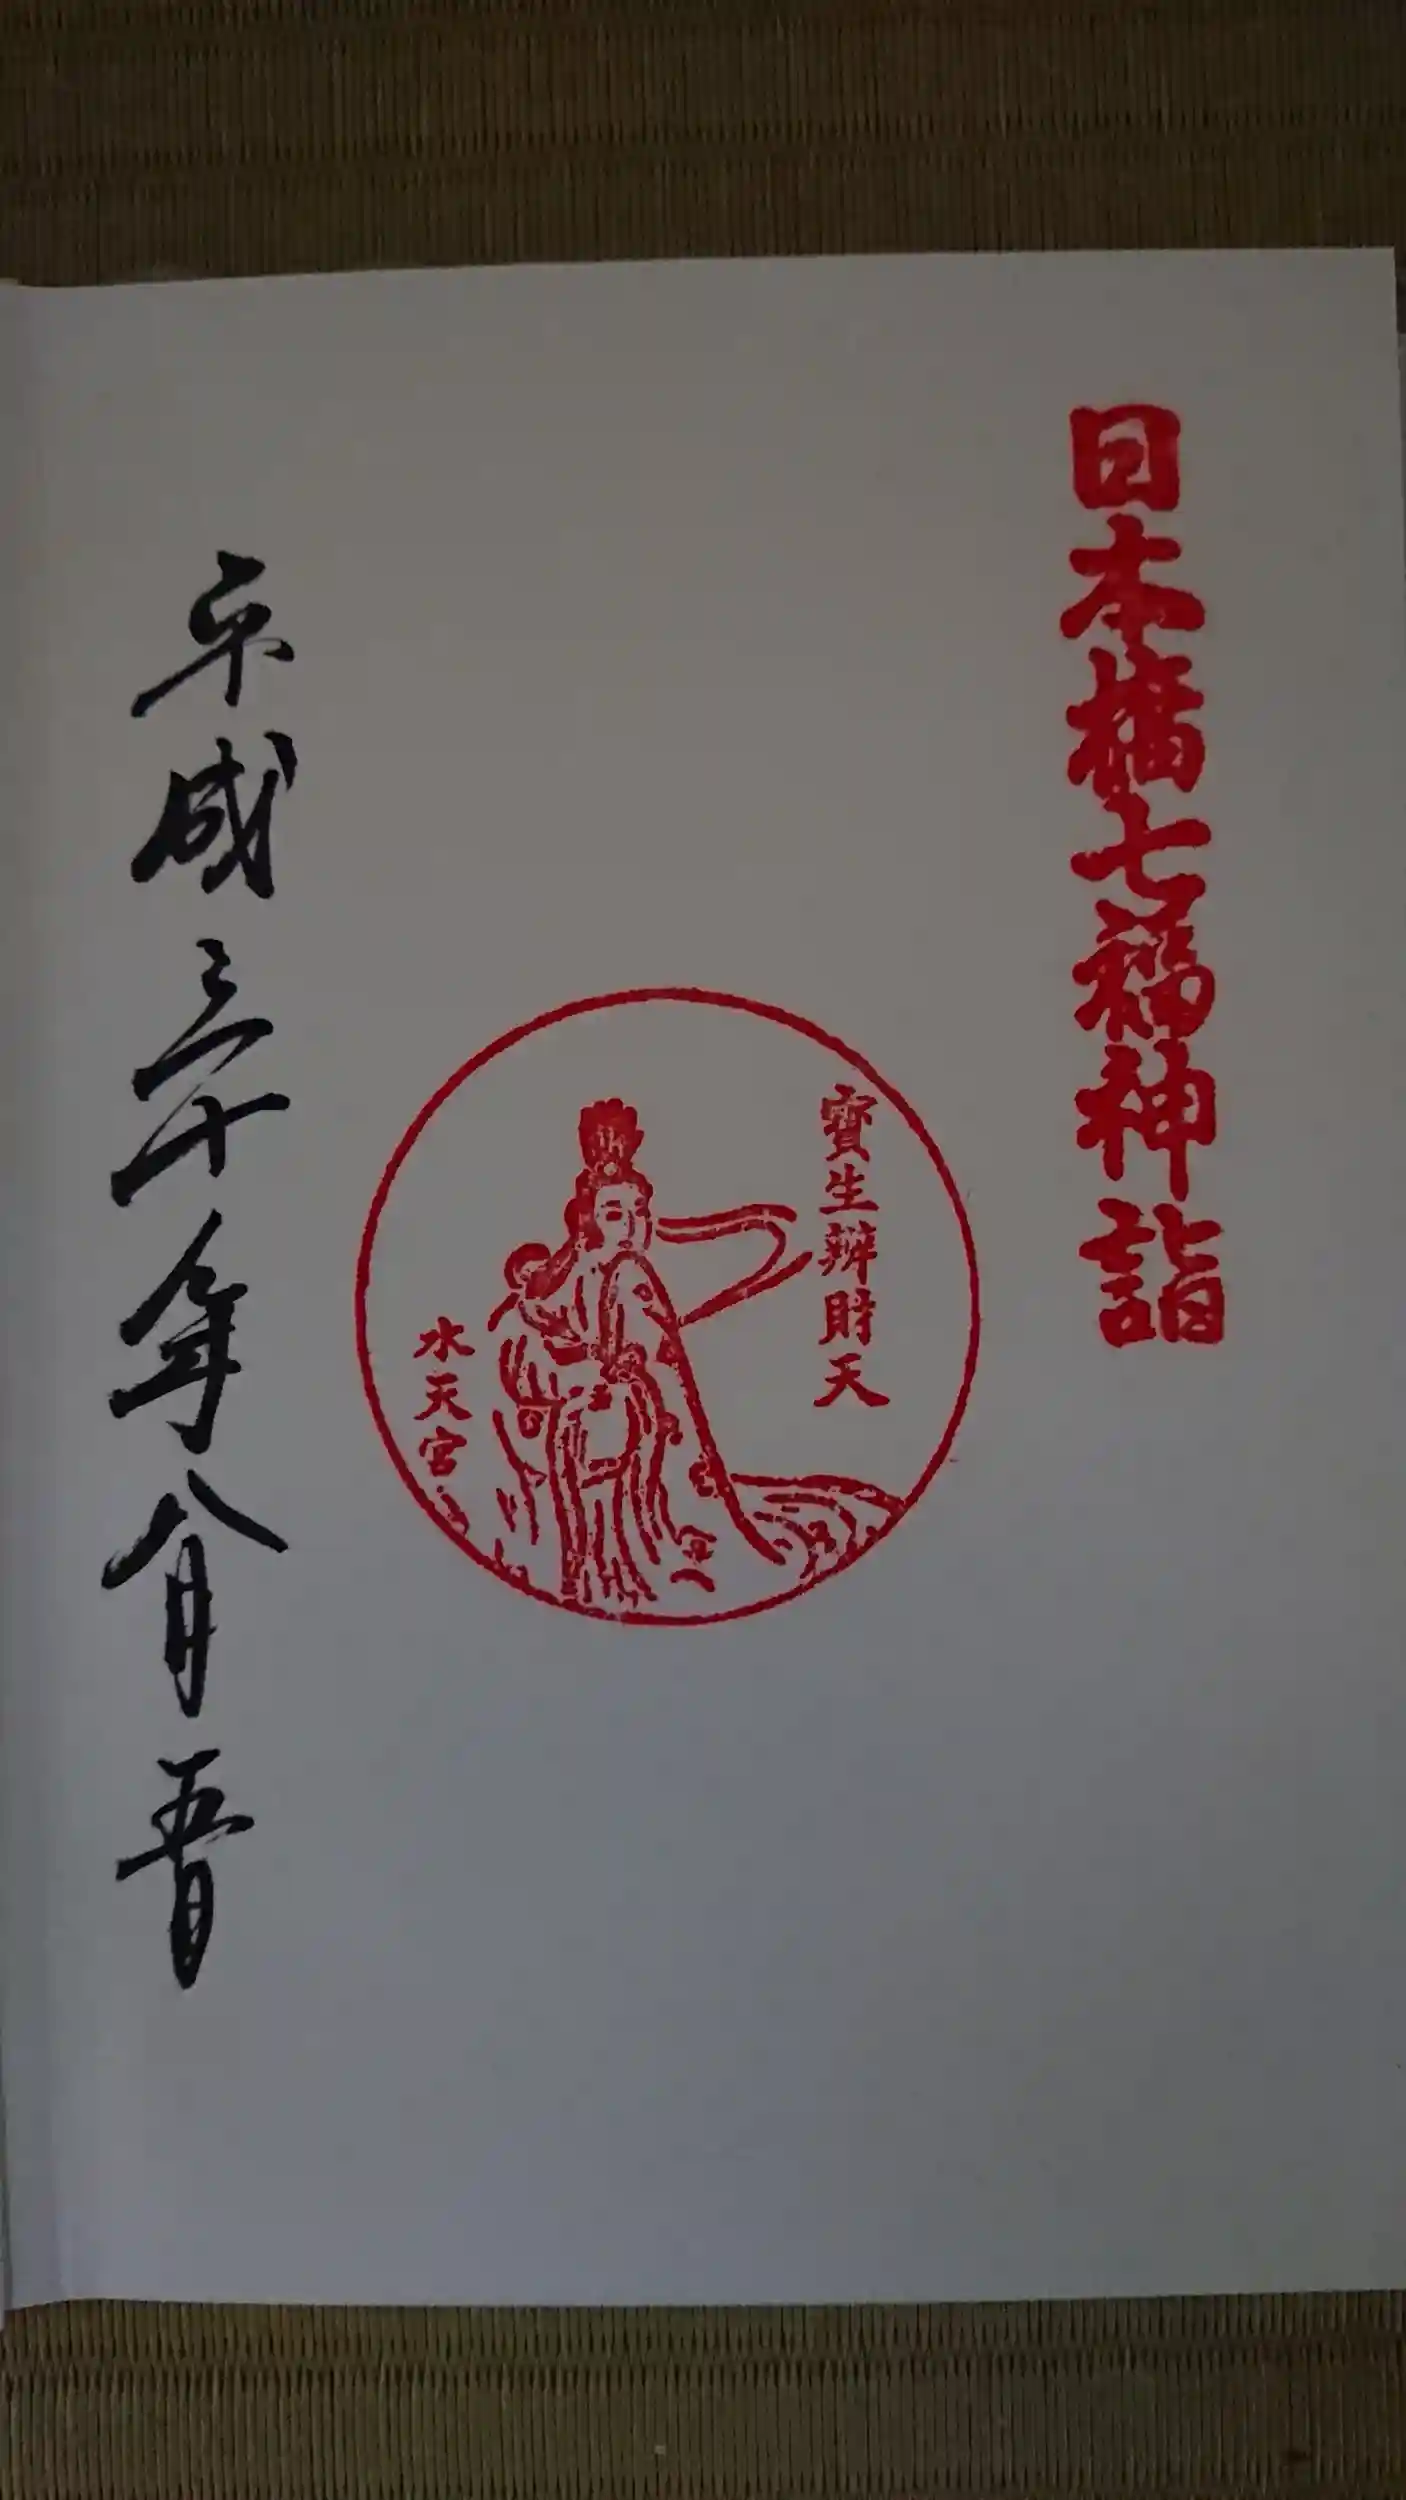 日本橋七福神詣
寶生辨財天
水天宮
平成三十年八月五日